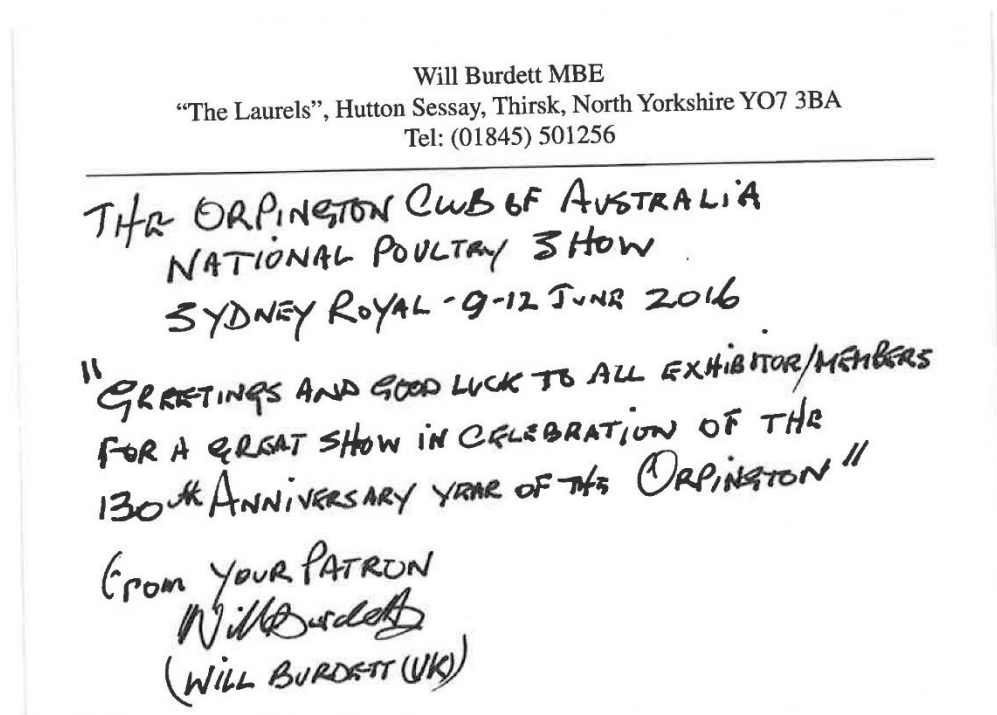 Will Burdett MBE
“The Laurels”, Hutton Sessay, Thirsk, North Yorkshire YO7 3BA
Tel: (01845) 501256
THE ORPINGTON CLUB OF AUSTRALIA
NATIONAL POULTRY SHOW
SYDNEY ROYAL - 9-12 JUNE 2016
"GREETINGS AND GOOD LUCK TO ALL EXHIBITOR/MEMBERS
FOR A GREAT SHOW IN CELEBRATION OF THE
130th ANNIVERSARY YEAR OF THE ORPINGTON"
From YOUR PATRON
Will Burdett
(WILL BURDETT (UK))